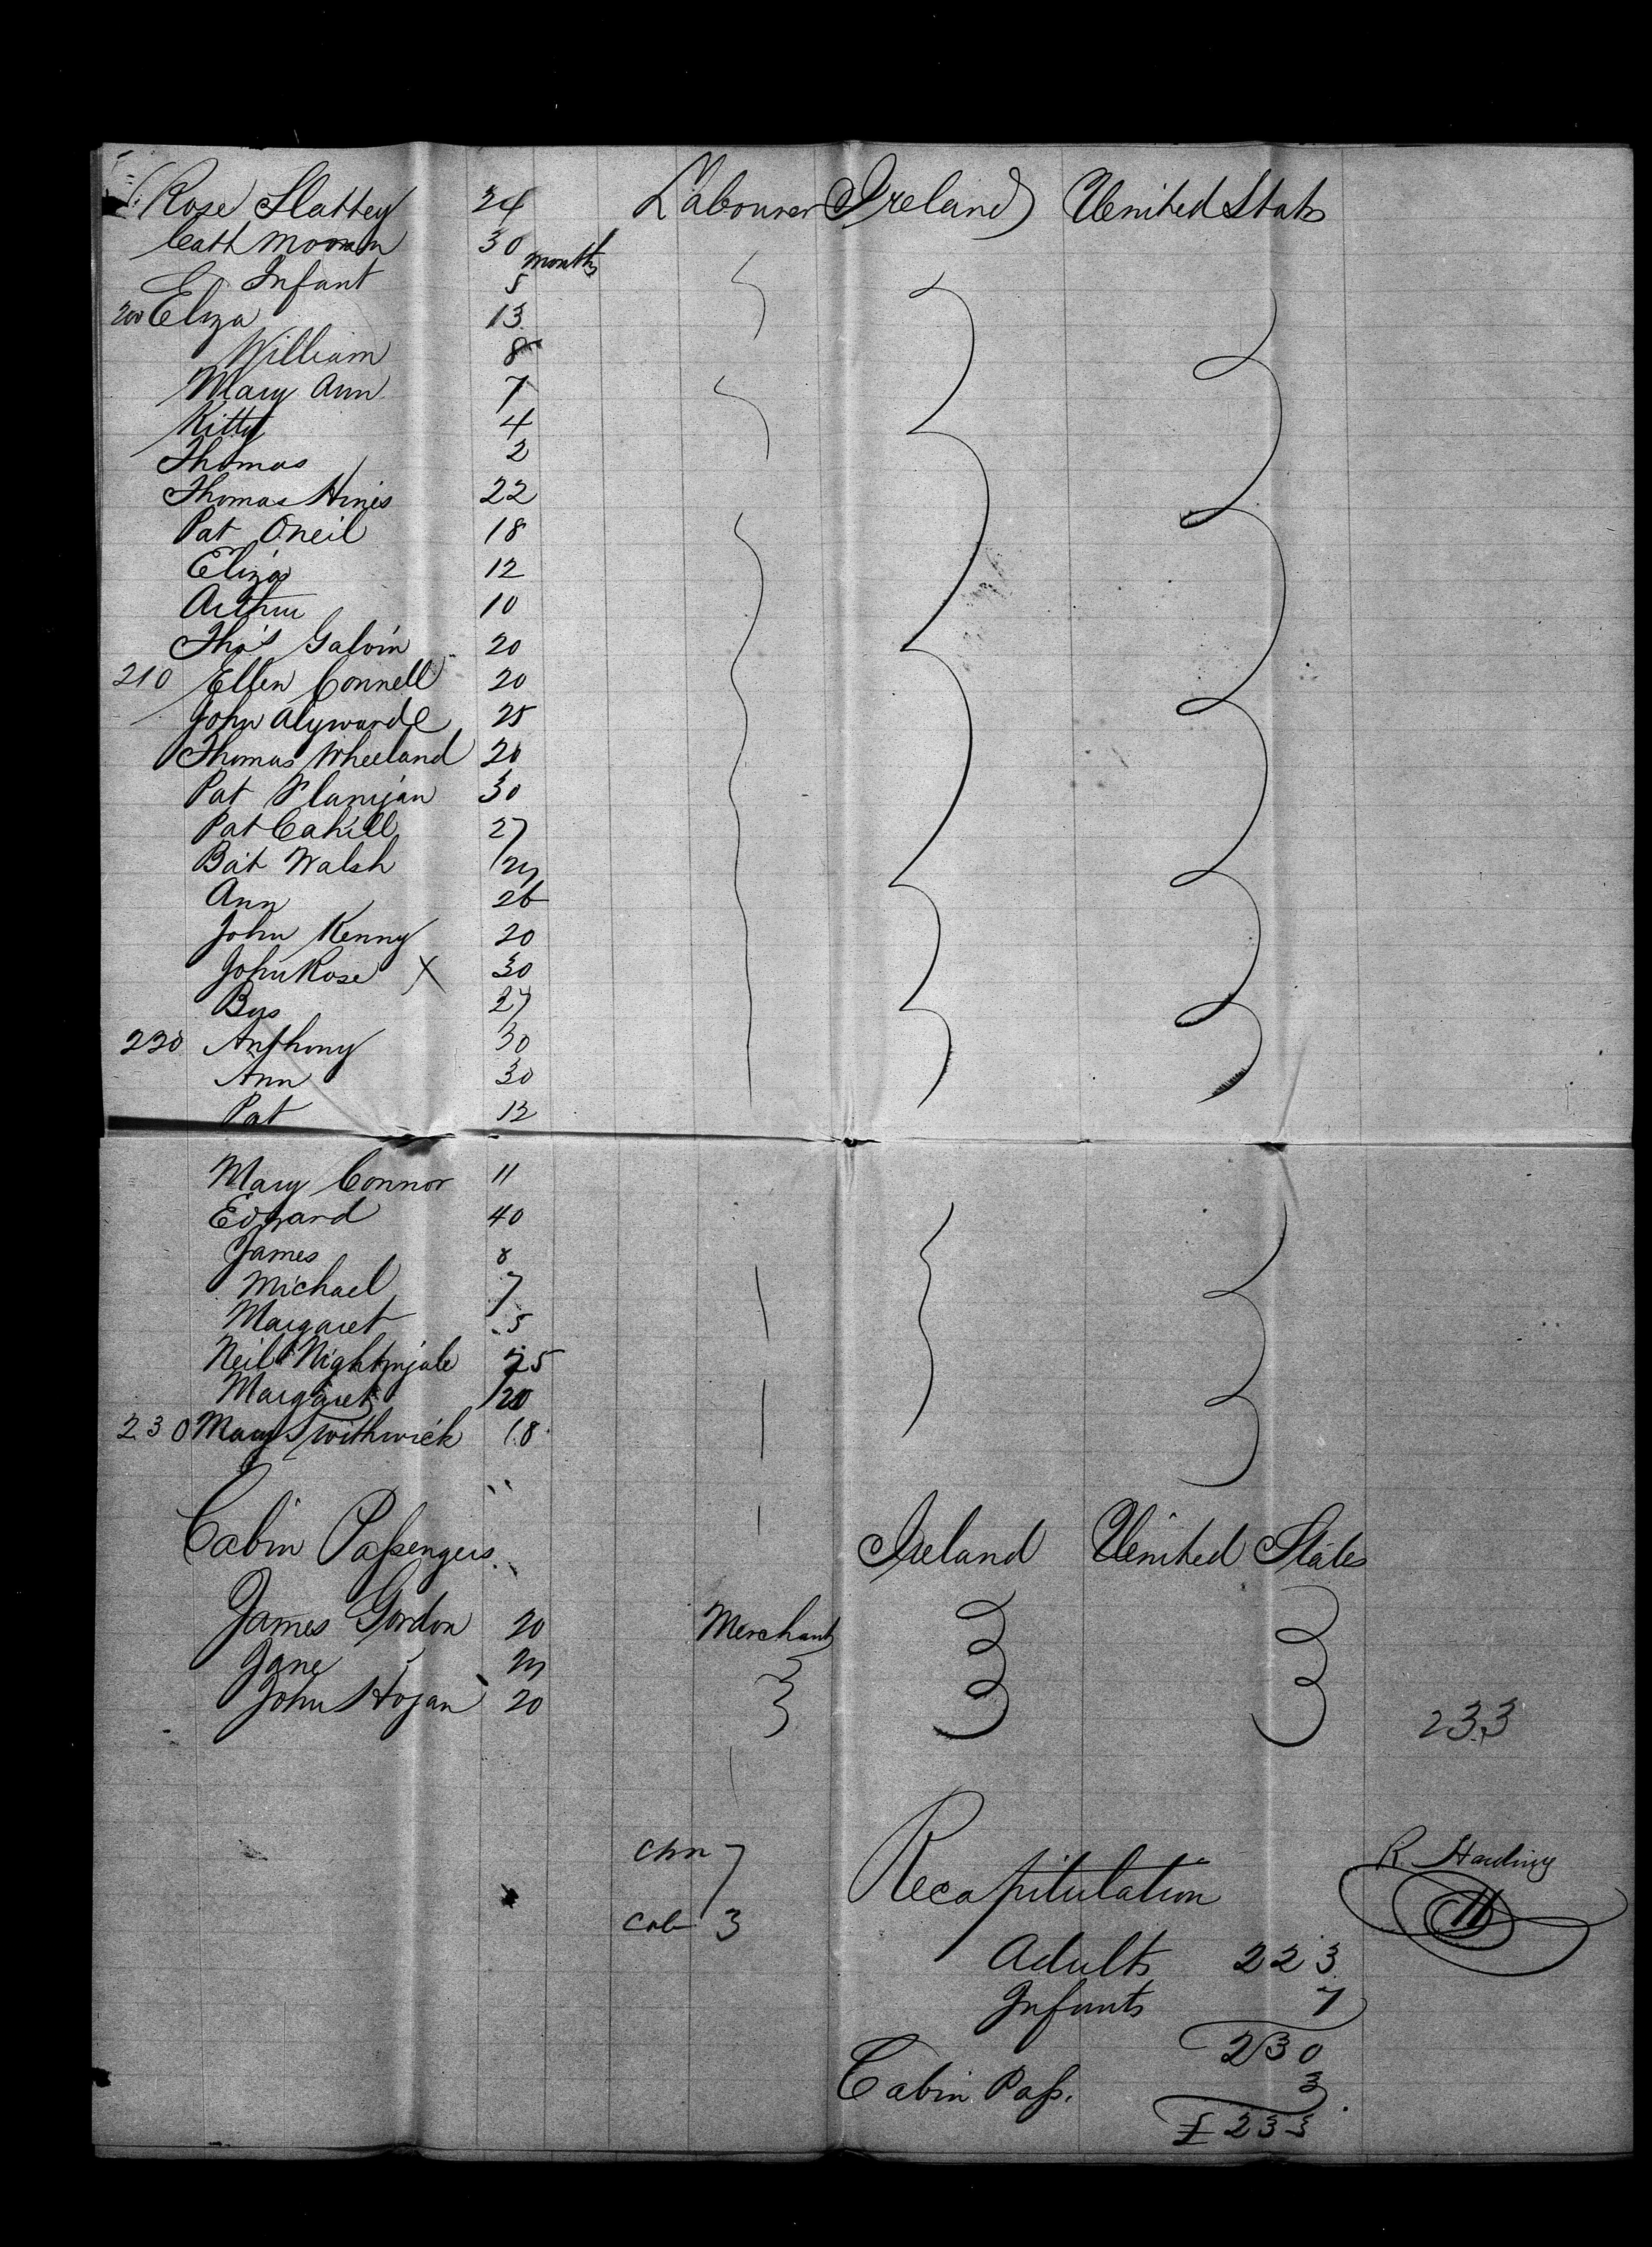 Rose Slattey 24 Labourer Ireland United States
Cath 30
Infant 5 months
200 Eliza 13
William 8
Mary Ann 7
Kitty 4
Thomas 2
Thomas Hines 22
Pat Oneil 18
Eliza 12
Arthur 10
Tho's Galvin 20
210 Ellen Connell 20
John Alyward 25
Thomas Wheeland 20
Pat Flanijan 30
Pat Cahill 27
Bat Walsh
Ann 26
John Kenny 20
John Rose X 30
27
220 Anthony 30
Ann 30
Pat 12
Mary Connor 11
Edward 40
James 8
Michael 7
Margaret 5
Neil Nightinjale 25
Margaret 20
230 Mary Smithwick 18
Cabin Passengers Ireland United States
James Gordon 20 Merchant
Jane
John Hogan 20
233
Chn 7
R. Harding
Recapitulation
Cab 3
Adults 223
Infants 7
230
Cabin Pass. 3
233